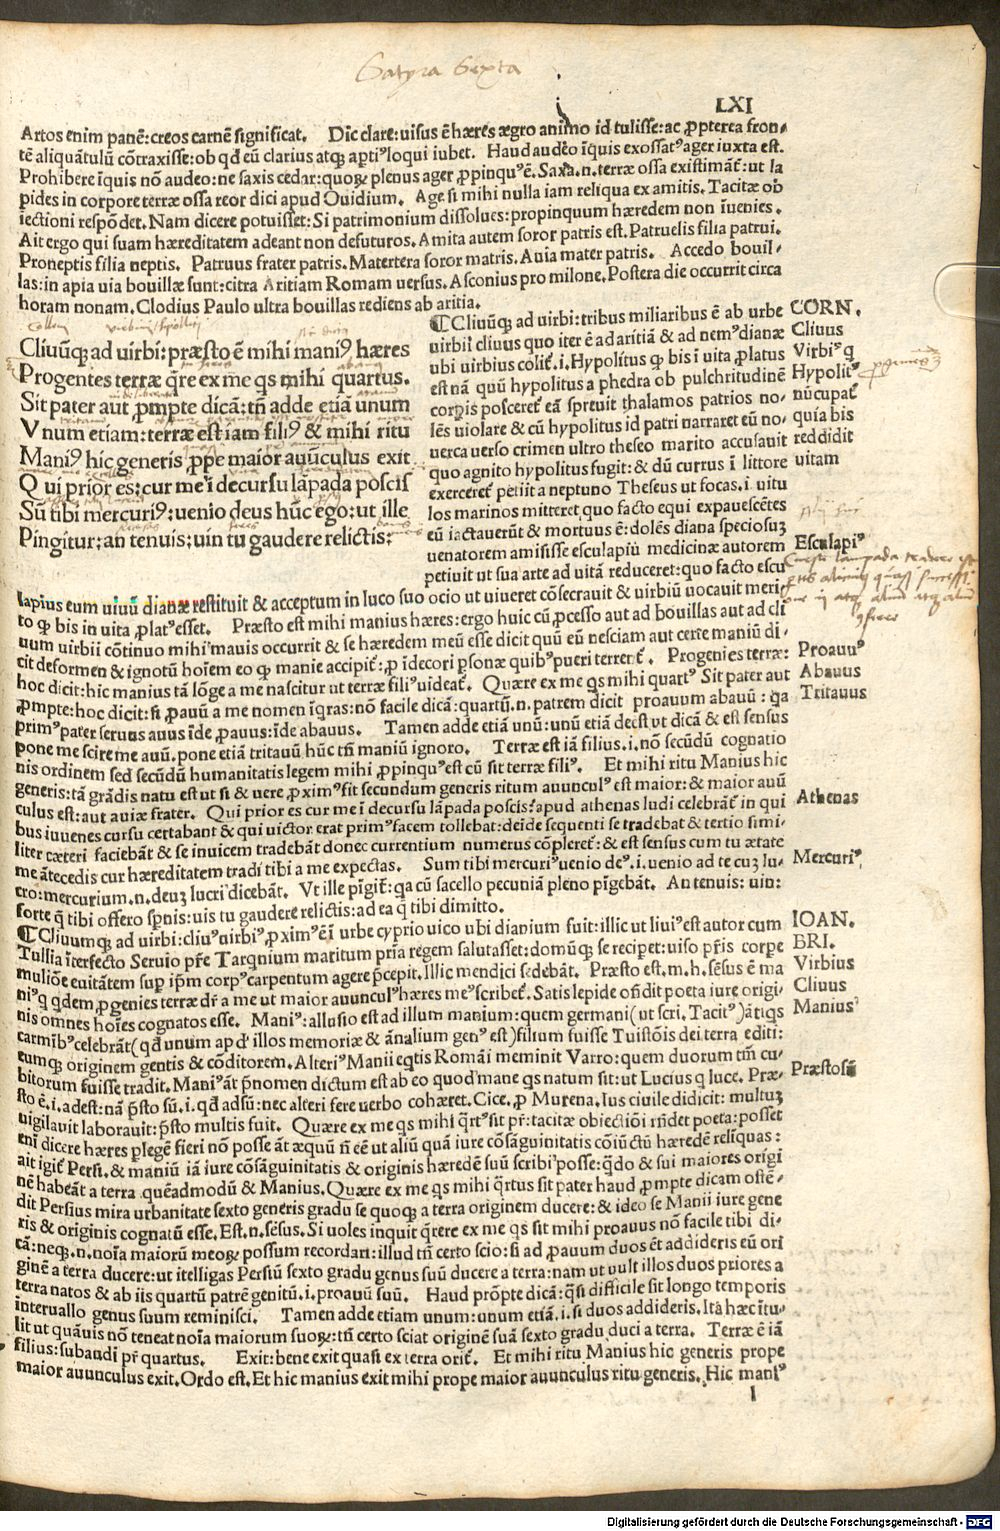 Satyra Sexta
LXI
Artos enim panē:creos carnē significat. Dic clare:uisus ē hæres ægro animo id tulisse:ac ꝓpterea fron⸗
tē aliquātulū cōtraxisse:ob qd̄ eū clarius atqꝫ apti⁹loqui iubet. Haud audeo īquis exossat⁹ager iuxta est.
Prohibere īquis nō audeo:ne saxis cedar:quoꝝ plenus ager ꝓpinqu⁹ē. Saxa.n.terræ ossa existimāt̄:ut la
pides in corpore terræ ossa reor dici apud Ouidium. Age si mihi nulla iam reliqua ex amitis. Tacitæ ob
iectioni respōdet. Nam dicere potuisset:Si patrimonium dissolues:propinquum hæredem non īuenies.
Ait ergo qui suam hæreditatem adeant non defuturos. Amita autem soror patris est. Patruelis filia patrui.
Proneptis filia neptis. Patruus frater patris. Matertera soror matris. Auia mater patris. Accedo bouil⸗
las:in apia uia bouillæ sunt:citra Aritiam Romam uersus. Asconius pro milone. Postera die occurrit circa
horam nonam. Clodius Paulo ultra bouillas rediens ab aritia.
Cliuūqꝫ ad uirbi:præsto ē mihi mani⁹ hæres
Progentes terræ q̄re ex me qs mihi quartus.
Sit pater aut ꝓmpte dicā:tn̄ adde etiā unum
Vnum etiam:terræ est iam fili⁹ & mihi ritu
Mani⁹ hic generis ꝓpe maior auūculus exit
Qui prior es:cur me ī decursu lāpada poscis
Sū tibi mercuri⁹:uenio deus hūc ego:ut ille
Pingitur:an tenuis:uin tu gaudere relictis:
¶Cliuūqꝫ ad uirbi:tribus miliaribus ē ab urbe
uirbii cliuus quo iter ē ad aritiā & ad nem⁹dianæ
ubi uirbius colit̄.i.Hypolitus qꝫ bis ī uita ꝓlatus
est nā quū hypolitus a phedra ob pulchritudinē
corpis posceret̄ eā spreuit thalamos patrios no⸗
lēs uiolare & cū hypolitus id patri narraret eū no⸗
uerca uerso crimen ultro theseo marito accusauit
quo agnito hypolitus fugit:& dū currus ī littore
exerceret̄ petiit a neptuno Theseus ut focas.i.uitu
los marinos mitteret quo facto equi expauescētes
eū iactauerūt & mortuus ē:dolēs diana speciosuꝫ
uenatorem amisisse esculapiū medicinæ autorem
petiuit ut sua arte ad uitā reduceret:quo facto escu
CORN.
Cliuus
Virbi⁹ q
Hypolit⁹
nūcupat̄
quia bis
reddidit
uitam
Esculapi⁹
lapius eum uiuū dianæ restituit & acceptum in luco suo ocio ut uiueret cōsecrauit & uirbiū uocauit meri⸗
to qꝫ bis in uita ꝓlat⁹esset. Præsto est mihi manius hæres:ergo huic cū ꝓcesso aut ad bouillas aut ad cli
uum uirbii cōtinuo mihi mauis occurrit & se hæredem meū esse dicit quū eū nesciam aut certe maniū di⸗
cit deformen & ignotū hoīem eo qꝫ manie accipit̄:ꝓ īdecori ꝑsonæ quib⁹pueri terrent̄. Progenies terræ:
hoc dicit:hic manius tā lōge a me nascitur ut terræ fili⁹uideat̄. Quære ex me qs mihi quart⁹ Sit pater aut
ꝓmpte:hoc dicit:si ꝓauū a me nomen īqras:nō facile dicā:quartū.n.patrem dicit proauum abauū:qa
prim⁹pater seruus auus īde,ꝓauus:īde abauus. Tamen adde etiā unū:unū etiā deest ut dicā & est sensus
pone me scire me auū.pone etiā tritauū hūc tn̄ maniū ignoro. Terræ est iā filius.i.nō secūdū cognatio
nis ordinem sed secūdū humanitatis legem mihi ꝓpinqu⁹est cū sit terræ fili⁹. Et mihi ritu Manius hic
generis:tā grādis natu est ut si & uere ꝓxim⁹sit secundum generis ritum auuncul⁹ est maior:& maior auū
culus est:aut auiæ frater. Qui prior es cur me ī decursu lāpada poscis?apud athenas ludi celebrāt̄ in qui
bus iuuenes cursu certabant & qui uictor erat prim⁹facem tollebat:deīde sequenti se tradebat & tertio simi⸗
liter cæteri faciebāt & se inuicem tradebāt donec currentium numerus cōpleret̄:& est sensus cum tu ætate
me ātecedis cur hæreditatem tradi tibi a me expectas. Sum tibi mercuri⁹uenio de⁹.i.uenio ad te cuꝫ lu⸗
cro:mercurium.n.deuꝫ lucri dicebāt. Vt ille pīgit̄:qa cū sacello pecuniā pleno pīgebāt. An tenuis:uin:
forte q̄ tibi offero spnis:uis tu gaudere relictis:ad ea q̄ tibi dimitto.
Proauu⁹
Abauus
Tritauus
Athenas
Mercuri⁹
¶Cliuumqꝫ ad uirbi:cliu⁹uirbi⁹,ꝓxim⁹ē ī urbe cyprio uico ubi dianium fuit:illic ut liui⁹est autor cum
Tullia īterfecto Seruio pr̄e Tarqnium maritum pria regem salutasset:domūqꝫ se recipet:uiso pr̄is corpe
muliōe euitātem sup ipm corp⁹carpentum agere p̄cepit.Illic mendici sedebāt. Præsto est.m.h.sēsus ē ma
ni⁹q qdem ꝓgenies terræ dr̄ a me ut maior auuncul⁹hæres me⁹scribet̄.Satis lepide on̄dit poeta iure origi⸗
nis omnes hoīes cognatos esse. Mani⁹:allusio est ad illum manium:quem germani(ut scri.Tacit⁹)ātiqs
carmib⁹celebrāt(qd̄ unum apd̄ illos memoriæ & ānalium gen⁹est)filium fuisse Tuistōis dei terra editi:
eumqꝫ originem gentis & cōditorem.Alteri⁹Manii eqtis Romāi meminit Varro:quem duorum tm̄ cu⸗
bitorum fuisse tradit.Mani⁹āt p̄nomen dictum est ab eo quod mane qs natum sit:ut Lucius q luce. Præ⸗
sto ē.i.adest:nā p̄sto sū.i.qd̄ adsū:nec alteri fere uerbo cohæret.Cice.ꝓ Murena.Ius ciuile didicit:multuꝫ
uigilauit laborauit:p̄sto multis fuit. Quære ex me qs mihi q̄rt⁹sit pr̄:tacitæ obiectiōi rn̄det poeta:posset
eni dicere hæres ꝑlegē fieri nō posse āt æquū n̄ eē ut aliū quā iure cōsāguinitatis cōiūctū hæredē relīquas:
ait igit̄ Persi.& maniū iā iure cōsāguinitatis & originis hæredē suū scribi posse:q̄do & sui maiores origi
nē habeāt a terra quēadmodū & Manius.Quære ex me qs mihi q̄rtus sit pater haud ꝓmpte dicam ostē⸗
dit Persius mira urbanitate sexto generis gradu se quoqꝫ a terra originem ducere:& ideo se Manii iure gene
ris & originis cognatū esse.Est.n.sēsus.Si uoles inquit q̄rere ex me qs sit mihi proauus nō facile tibi di⸗
cā:neqꝫ.n.noīa maiorū meoꝝ possum recordari:illud tn̄ certo scio:si ad ꝓauum duos et addideris eū ori
ginē a terra ducere:ut itelligas Persiū sexto gradu genus suū ducere a terra:nam ut uult illos duos priores a
terra natos & ab iis quartū patrē genitū.i.proauū suū. Haud prōpte dicā:q̄si difficile sit longo temporis
interuallo genus suum reminisci. Tamen adde etiam unum:unum etiā.i.si duos addideris.Ita hæc ītu⸗
lit ut quāuis nō teneat noīa maiorum suoꝝ:tn̄ certo sciat originē suā sexto gradu duci a terra. Terræ ē iā
filius:subaudi pr̄ quartus. Exit:bene exit quasi ex terra orit̄. Et mihi ritu Manius hic generis prope
maior auunculus exit.Ordo est.Et hic manius exit mihi prope maior auunculus ritu generis.Hic mani⁹
l
IOAN.
BRI.
Virbius
Cliuus
Manius
Præsto sū
Digitalisierung gefördert durch die Deutsche Forschungsgemeinschaft - DFG